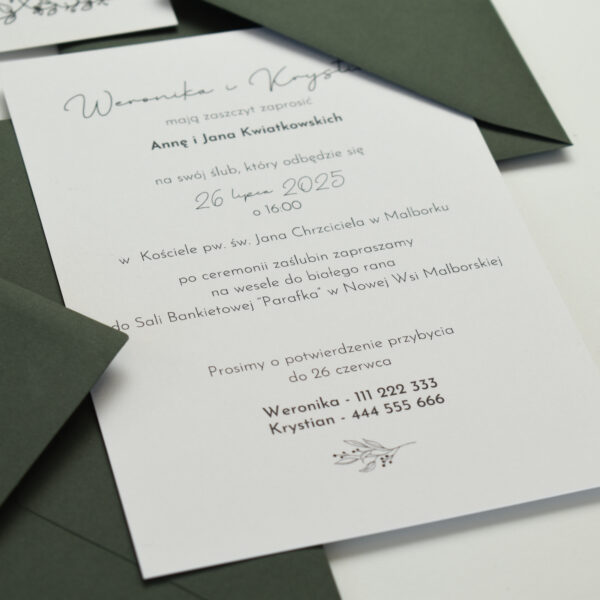 Weronika i Krystian
mają zaszczyt zaprosić
Annę i Jana Kwiatkowskich
na swój ślub, który odbędzie się
26 lipca 2025
o 16:00
w Kościele pw. św. Jana Chrzciciela w Malborku
po ceremonii zaślubin zapraszamy
na wesele do białego rana
do Sali Bankietowej "Parafka" w Nowej Wsi Malborskiej
Prosimy o potwierdzenie przybycia
do 26 czerwca
Weronika - 111 222 333
Krystian - 444 555 666